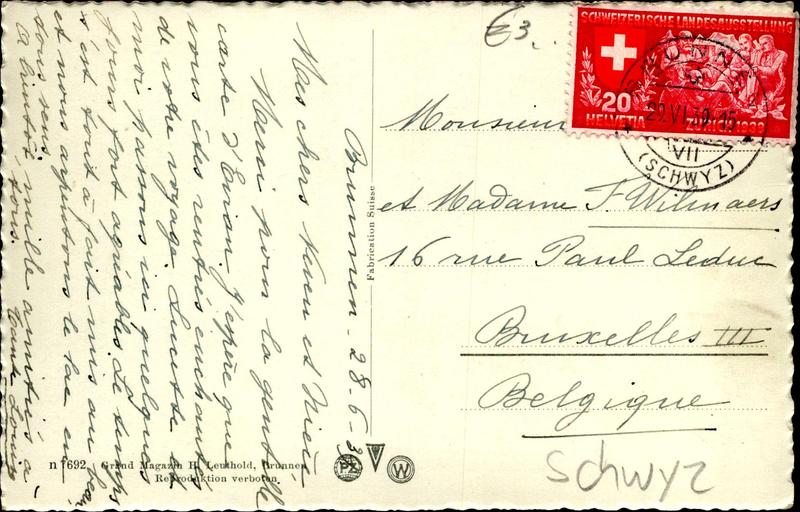 €3.
SCHWEIZERISCHE LANDESAUSSTELLUNG
20
HELVETIA ZÜRICH 1939
BRUNNEN
29.VI.39-15
VII
(SCHWYZ)
Monsieur
et Madame F. Wilmaers
16 rue Paul Leduc
Bruxelles III
Belgique
Schwyz
Fabrication Suisse
Brunnen - 28-6-39
Mes chers Neveu et Nièce
Merci pour la gentille
carte d'Evian. J'espère que
vous êtes rentrés enchantés
de votre voyage. Lucette et
moi passons ici quelques
jours fort agréables. Le temps
s'est tout à fait mis au beau
et nous arpentons le lac en
tous sens.
A bientôt mille amitiés à
tous. Tante Louise
n 7692 Grand Magazin H. Leuthold, Brunnen
Reproduktion verboten
PX
W